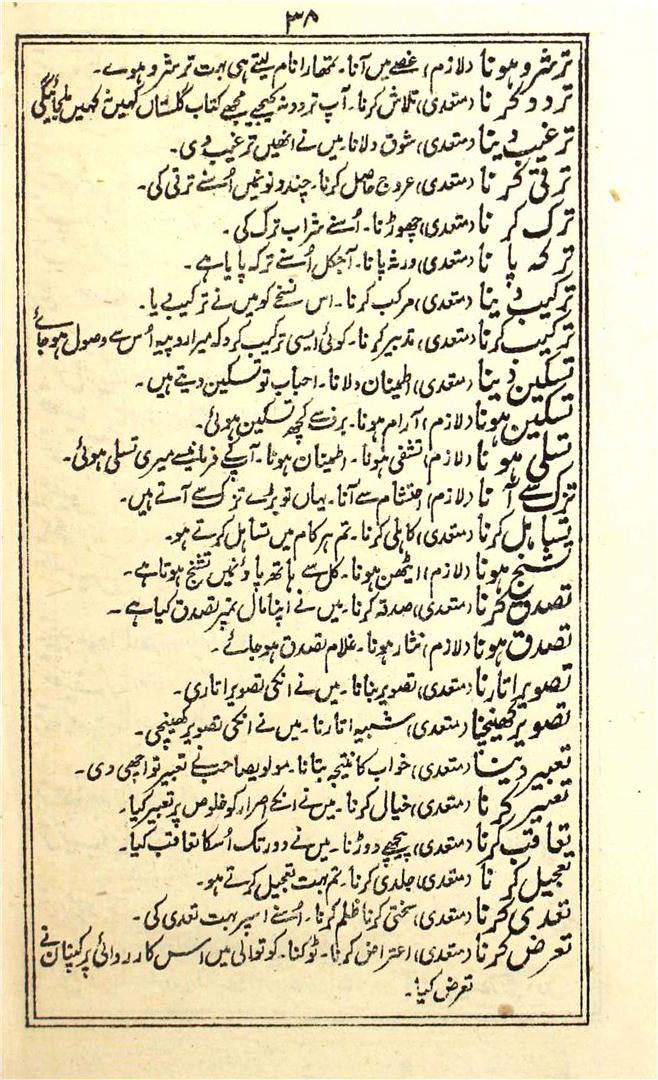 ۳۸
ترشرو ہونا (لازم) غصے میں آنا۔ تمھارا نام لیتے ہی بہت ترشرو ہوے۔
تردد کرنا (متعدی) تلاش کرنا۔ آپ تردد نہ کیجیے مجھے کتاب گلستاں کہیں نہ کہیں ملجائیگی
ترغیب دینا (متعدی) شوق دلانا۔ میں نے انھیں ترغیب دی۔
ترقی کرنا (متعدی) عروج حاصل کرنا۔ چند دنوں میں اُسنے ترقی کی۔
ترک کرنا (متعدی) چھوڑنا۔ اُسنے شراب ترک کی۔
ترکہ پانا (متعدی) ورثہ پانا۔ آجکل اُسنے ترکہ پایا ہے۔
ترکیب دینا (متعدی) مرکب کرنا۔ اس نسخے کو میں نے ترکیب دیا۔
ترکیب کرنا (متعدی) تدبیر کرنا۔ کوئی ایسی ترکیب کرو کہ میرا روپیہ اُس سے وصول ہو جائے
تسکین دینا (متعدی) اطمینان دلانا۔ احباب تو تسکین دیتے ہیں۔
تسکین ہونا (لازم) آرام ہونا۔ برف سے کچھ تسکین ہوئی۔
تسلی ہونا (لازم) تشفی ہونا۔ اطمینان ہونا۔ آپکے فرمانیسے میری تسلی ہوئی۔
تزک سے آنا (لازم) احتشام سے آنا۔ یہاں تو بڑے تزک سے آتے ہیں۔
تساہل کرنا (متعدی) کاہلی کرنا۔ تم ہر کام میں تساہل کرتے ہو۔
تشنج ہونا (لازم) اینٹھن ہونا۔ کل سے ہاتھ پاؤنمیں تشنج ہوتا ہے۔
تصدق کرنا (متعدی) صدقہ کرنا۔ میں نے اپنا مال تمپر تصدق کیا ہے۔
تصدق ہونا (لازم) نثار ہونا۔ غلام تصدق ہو جائے۔
تصویر اتارنا (متعدی) تصویر بنانا۔ میں نے انکی تصویر اتاری۔
تصویر کھینچنا (متعدی) شبیہ اتارنا۔ میں نے انکی تصویر کھینچی۔
تعبیر دینا (متعدی) خواب کا نتیجہ بتانا۔ مولویصاحب نے تعبیر تو اچھی دی۔
تعبیر کرنا (متعدی) خیال کرنا۔ میں نے انکے اصرار کو خلوص پر تعبیر کیا۔
تعاقب کرنا (متعدی) پیچھے دوڑنا۔ میں نے دور تک اُسکا تعاقب کیا۔
تعجیل کرنا (متعدی) جلدی کرنا۔ تم بہت تعجیل کرتے ہو۔
تعدی کرنا (متعدی) سختی کرنا ظلم کرنا۔ اُسنے اسپر بہت تعدی کی۔
تعرض کرنا (متعدی) اعتراض کرنا۔ ٹوکنا۔ کوتوالی میں اس کارروائی پر کپتان نے
تعرض کیا۔